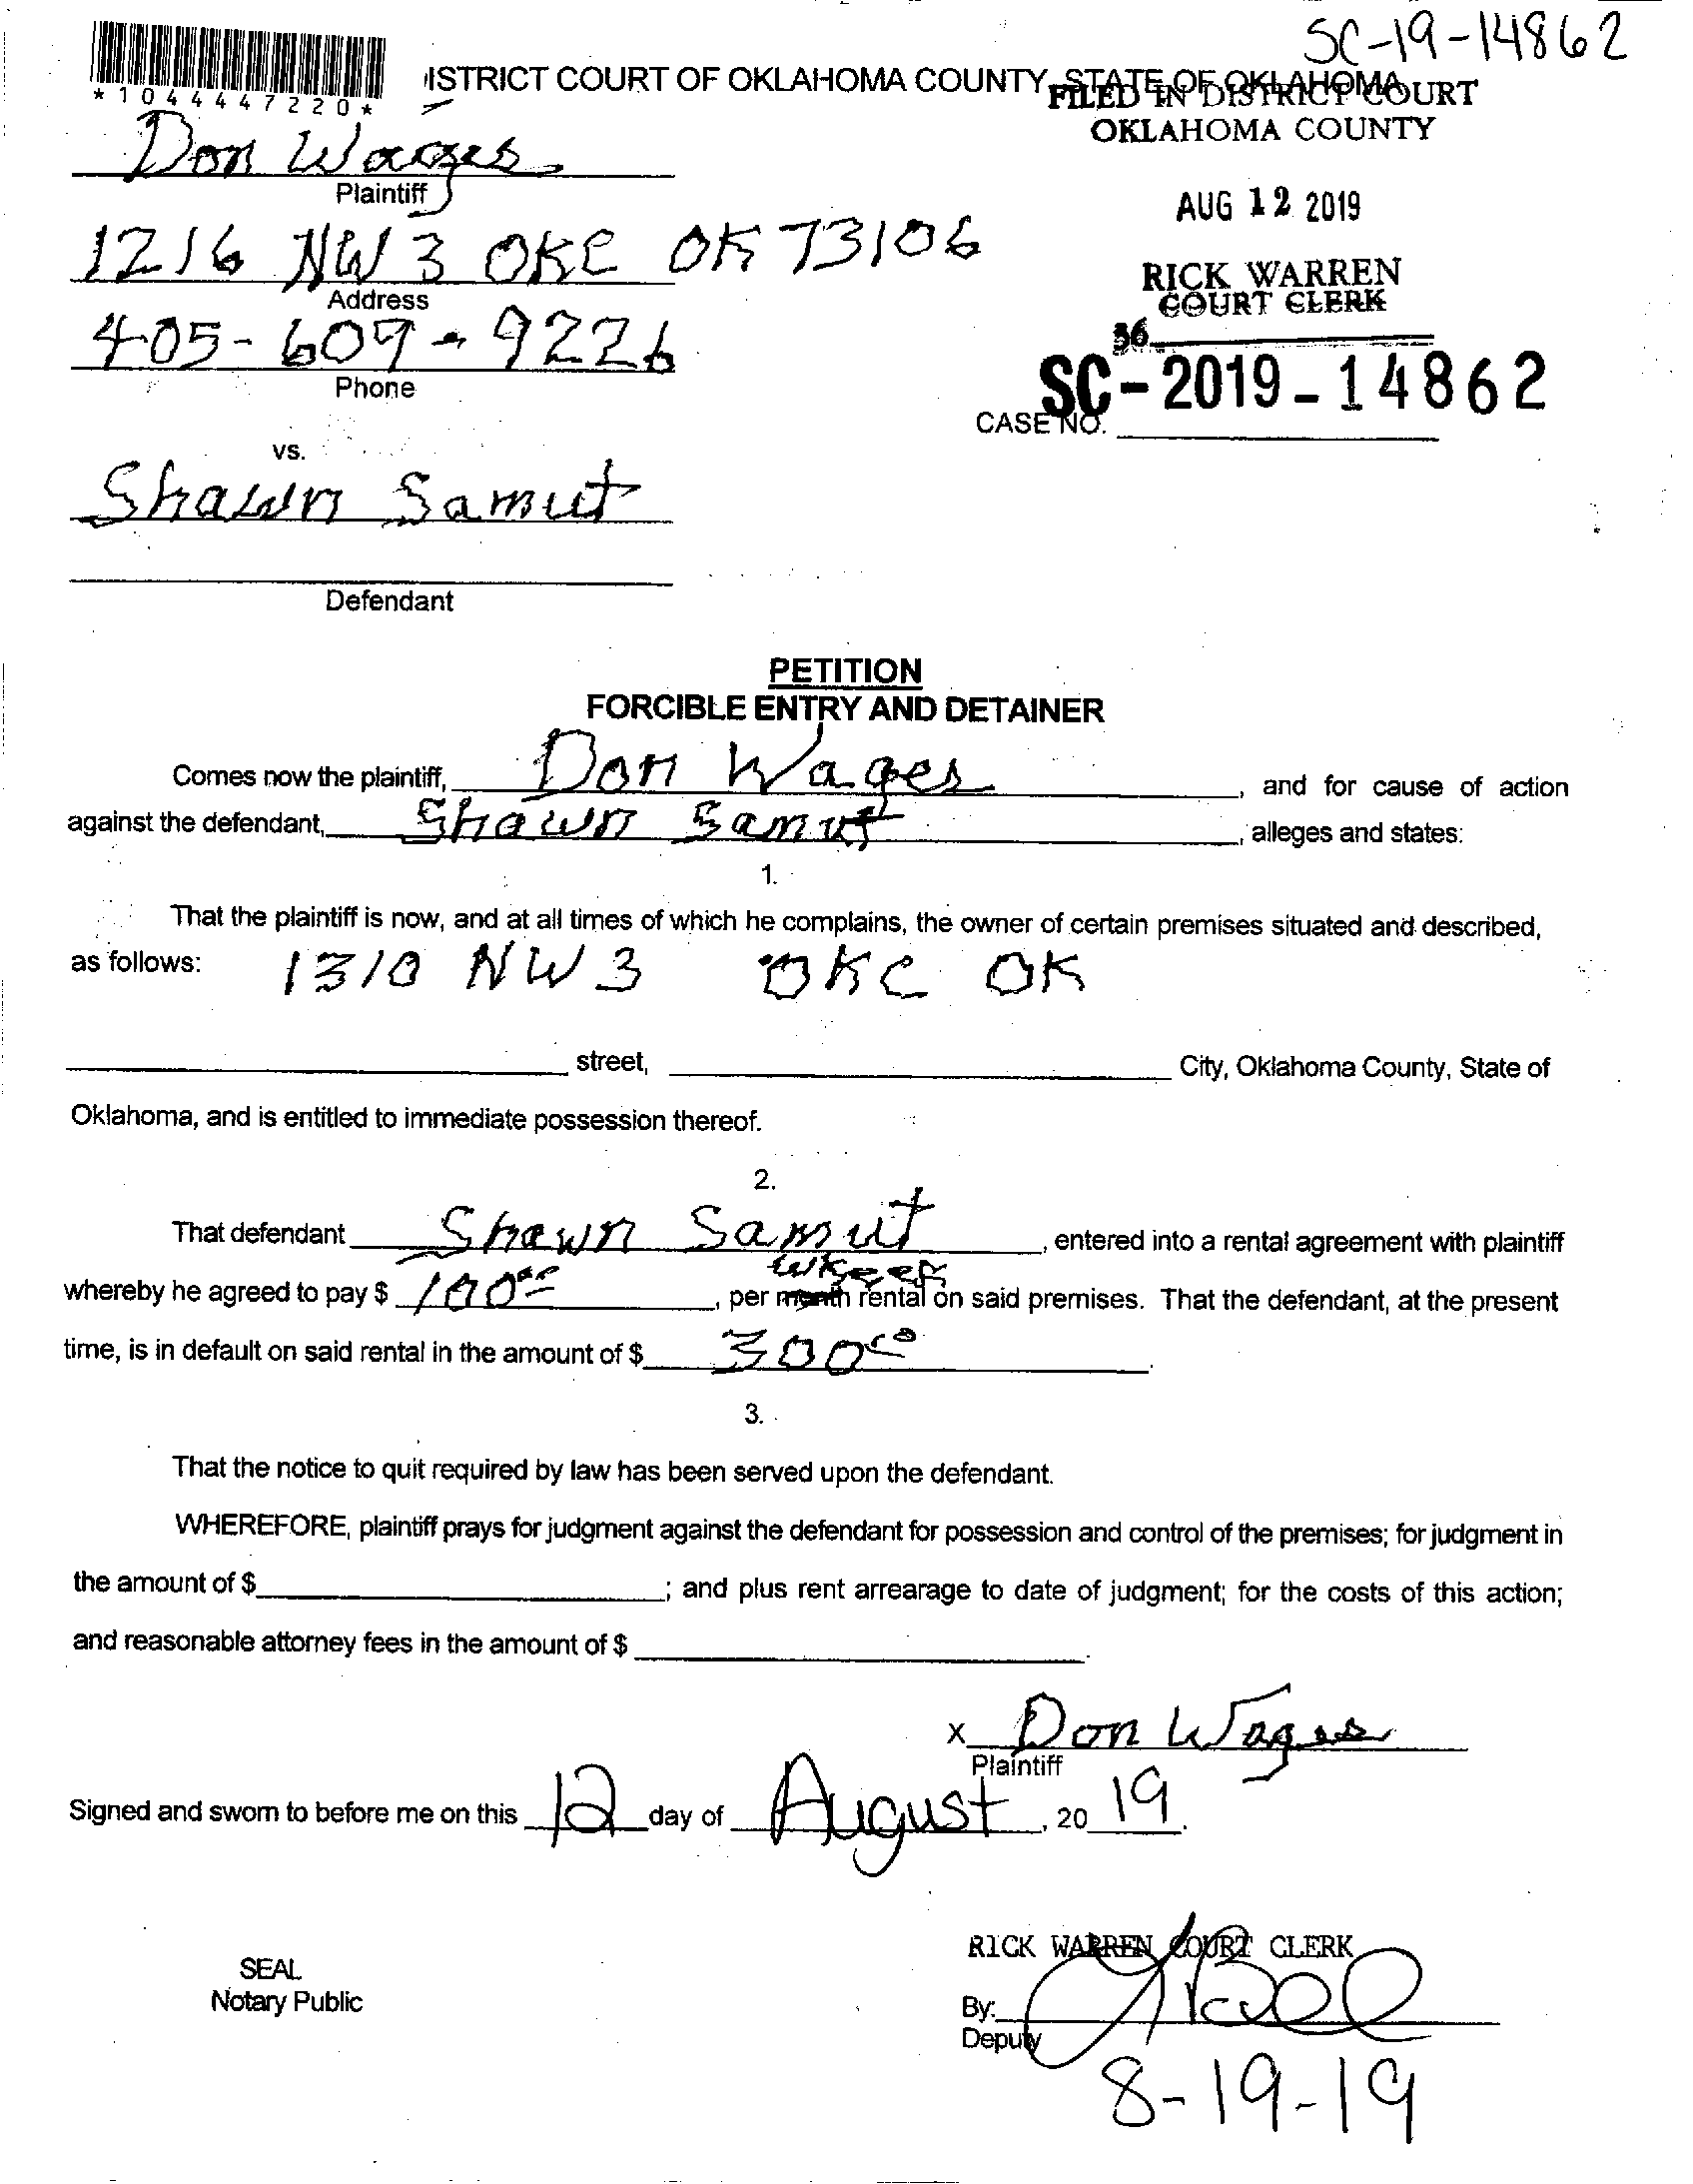 SC-19-14862
*1044447220*
ISTRICT COURT OF OKLAHOMA COUNTY, STATE OF OKLAHOMA
FILED IN DISTRICT COURT
OKLAHOMA COUNTY
Don Wages
Plaintiff
AUG 12 2019
1216 NW 3 OKC OK 73106
Address
RICK WARREN
COURT CLERK
405-609-9226
Phone
36
SC-2019-14862
CASE NO.
vs.
Shawn Samut
Defendant
PETITION
FORCIBLE ENTRY AND DETAINER
Comes now the plaintiff, Don Wages, and for cause of action
against the defendant, Shawn Samut, alleges and states:
1.
That the plaintiff is now, and at all times of which he complains, the owner of certain premises situated and described,
as follows: 1310 NW 3 OKC OK
street, City, Oklahoma County, State of
Oklahoma, and is entitled to immediate possession thereof.
2.
That defendant Shawn Samut, entered into a rental agreement with plaintiff
week
whereby he agreed to pay $ 100.00, per month rental on said premises. That the defendant, at the present
time, is in default on said rental in the amount of $ 300.00.
3.
That the notice to quit required by law has been served upon the defendant.
WHEREFORE, plaintiff prays for judgment against the defendant for possession and control of the premises; for judgment in
the amount of $ ; and plus rent arrearage to date of judgment; for the costs of this action;
and reasonable attorney fees in the amount of $ .
X Don Wages
Plaintiff
Signed and sworn to before me on this 12 day of August, 2019.
RICK WARREN COURT CLERK
SEAL
Notary Public
By:
Deputy
8-19-19